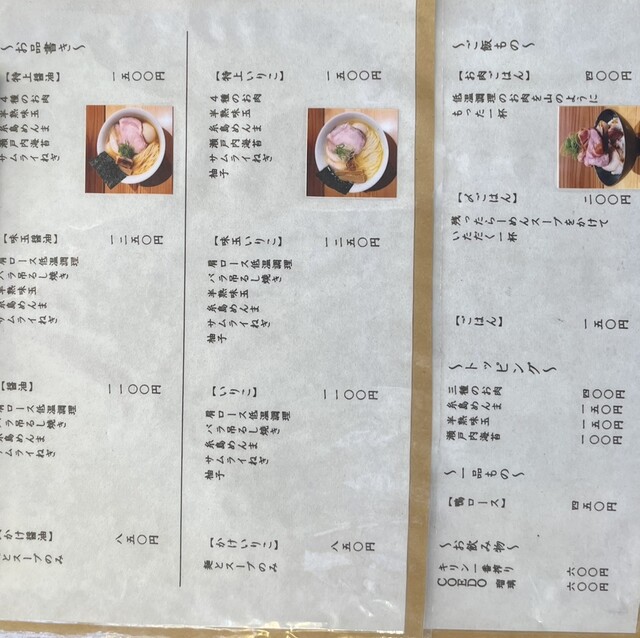 〜お品書き〜
【特上醤油】 一五〇〇円
4種のお肉
半熟味玉
糸島めんま
瀬戸内海苔
サムライねぎ
【味玉醤油】 一二五〇円
肩ロース低温調理
バラ吊るし焼き
半熟味玉
糸島めんま
サムライねぎ
【醤油】 一一〇〇円
肩ロース低温調理
バラ吊るし焼き
糸島めんま
サムライねぎ
【かけ醤油】 八五〇円
麺とスープのみ
【特上いりこ】 一五〇〇円
4種のお肉
半熟味玉
糸島めんま
瀬戸内海苔
サムライねぎ
柚子
【味玉いりこ】 一二五〇円
肩ロース低温調理
バラ吊るし焼き
半熟味玉
糸島めんま
サムライねぎ
柚子
【いりこ】 一一〇〇円
肩ロース低温調理
バラ吊るし焼き
糸島めんま
サムライねぎ
柚子
【かけいりこ】 八五〇円
麺とスープのみ
〜ご飯もの〜
【お肉ごはん】 四〇〇円
低温調理のお肉を山のように
もった一杯
【〆ごはん】 二〇〇円
残ったらーめんスープをかけて
いただく一杯
【ごはん】 一五〇円
〜トッピング〜
三種のお肉 四〇〇円
糸島めんま 一五〇円
半熟味玉 一五〇円
瀬戸内海苔 一〇〇円
〜一品もの〜
【鴨ロース】 四五〇円
〜お飲み物〜
キリン一番搾り 六〇〇円
COEDO 瑠璃 六〇〇円